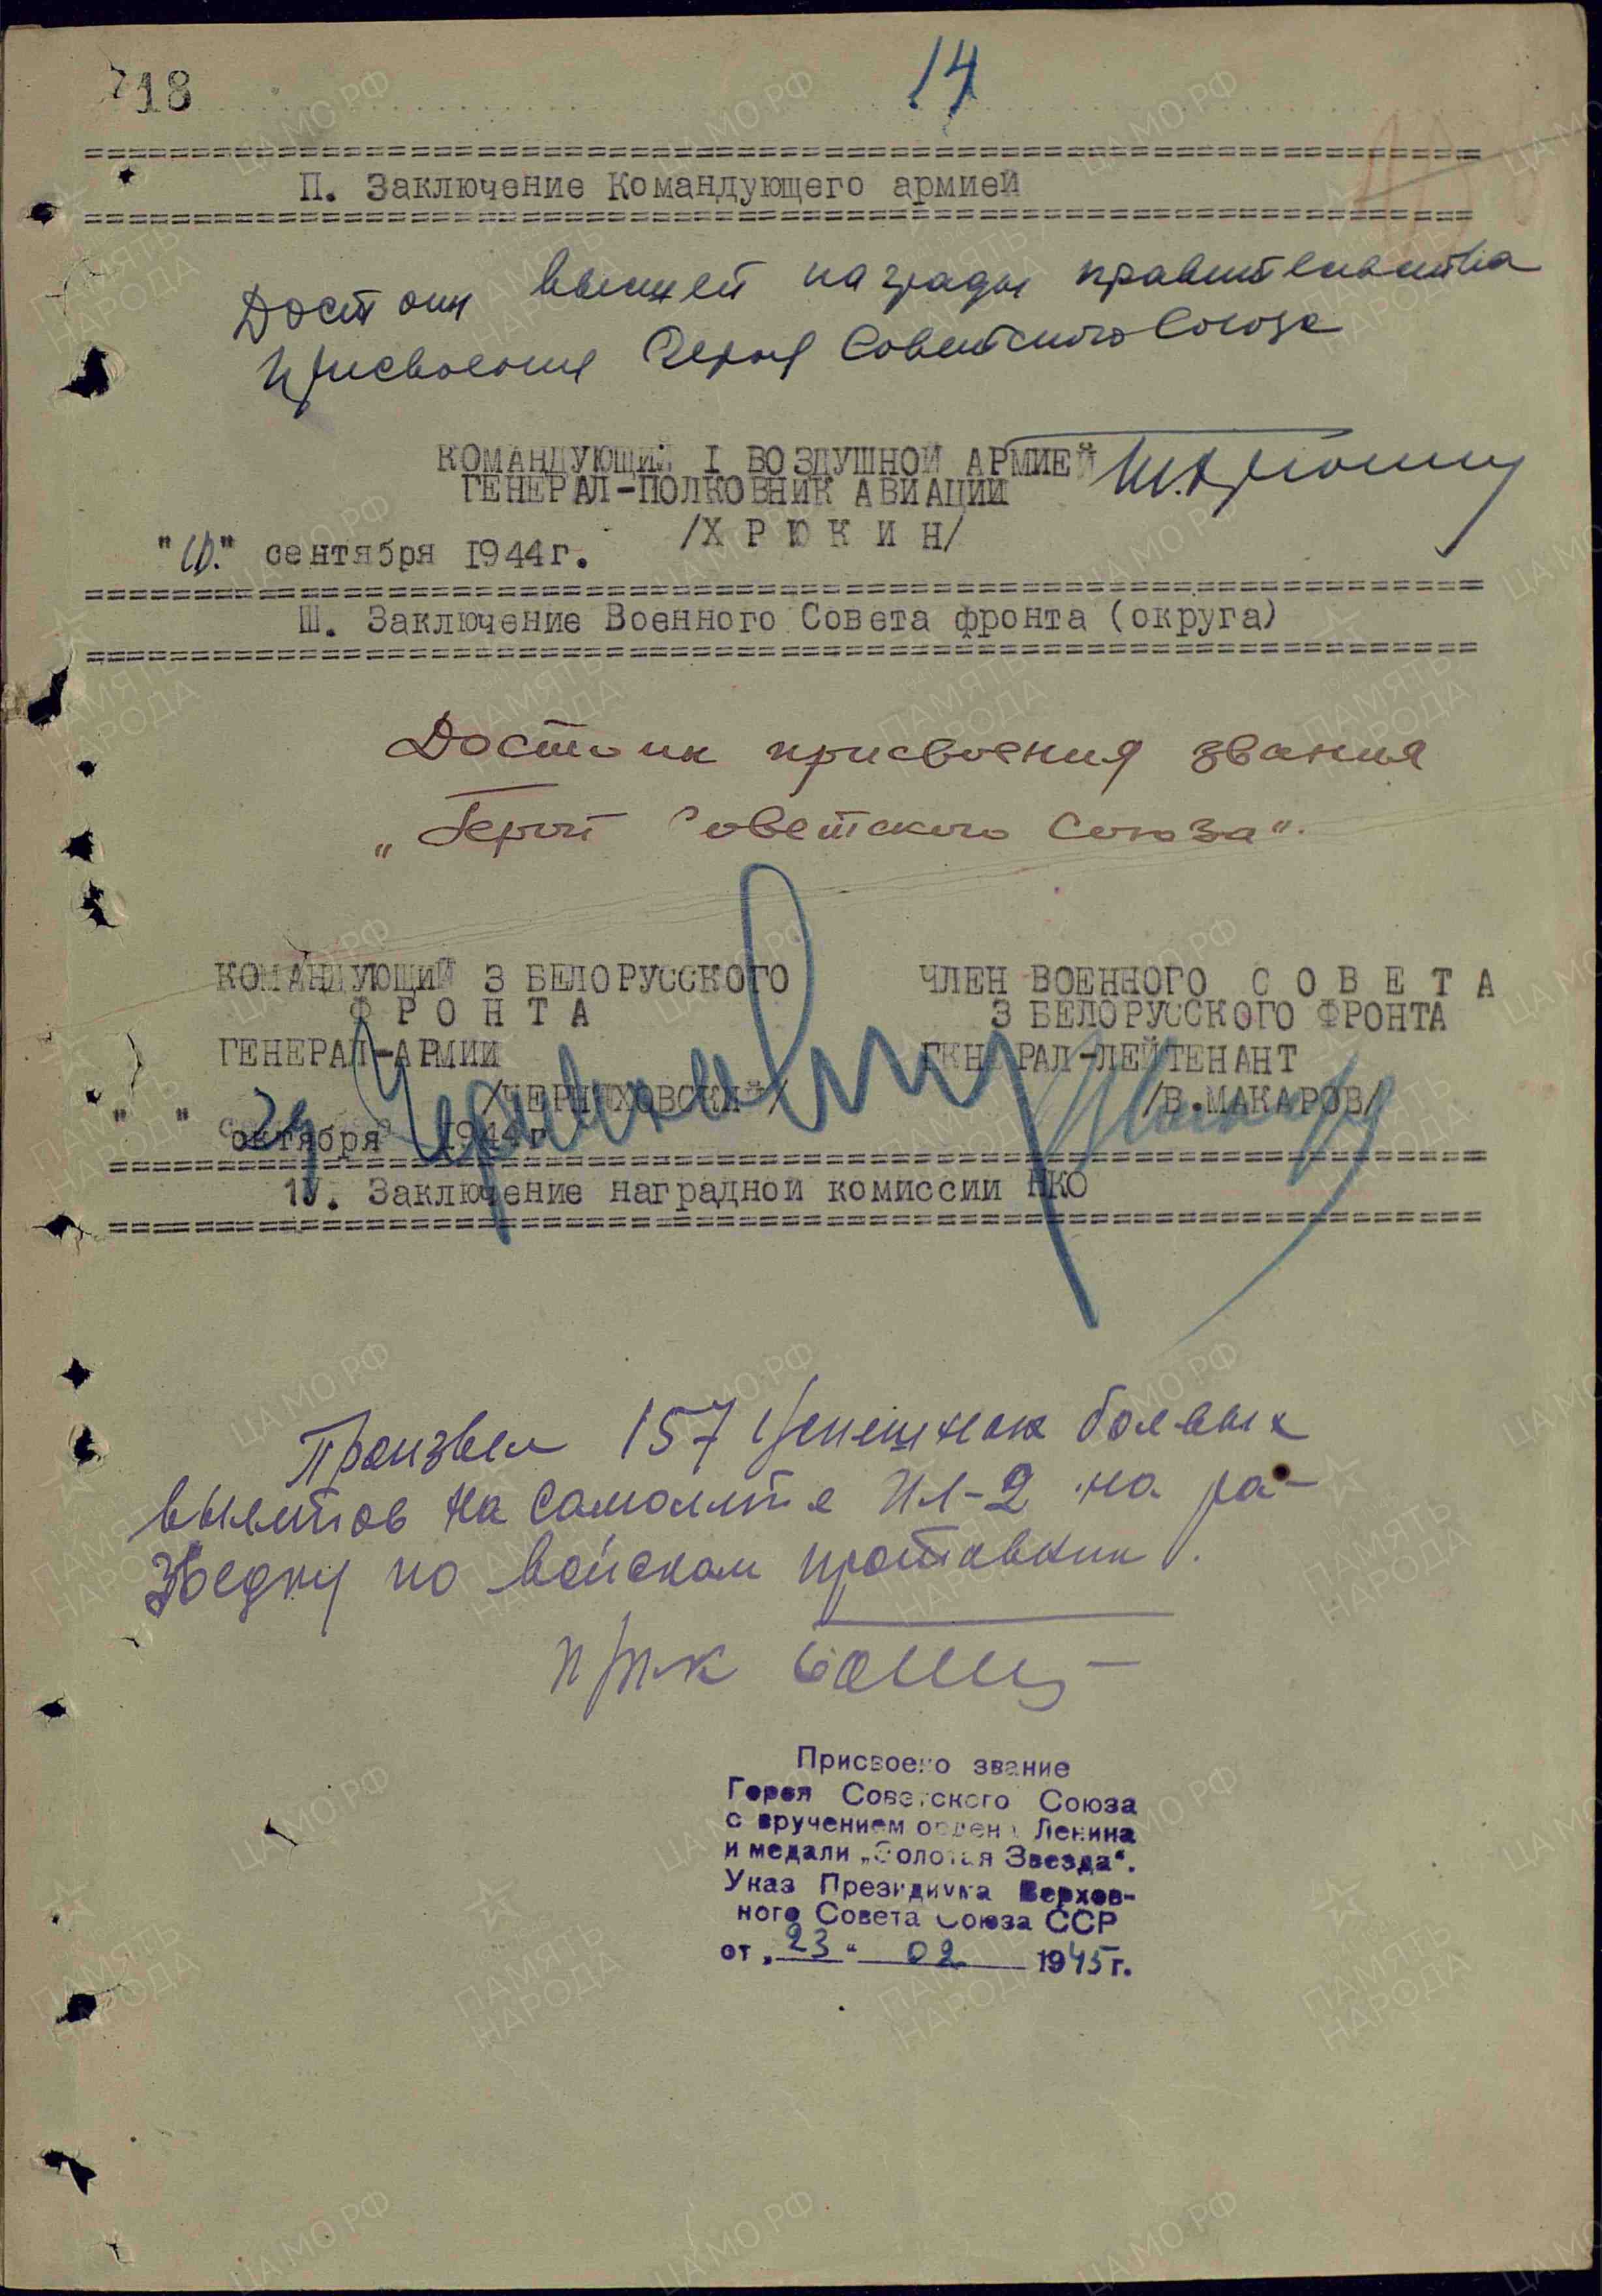 718
14
П. Заключение Командующего армией
Достоин высшей награды правительства
присвоения Героя Советского Союза
КОМАНДУЮЩИЙ I ВОЗДУШНОЙ АРМИЕЙ
ГЕНЕРАЛ-ПОЛКОВНИК АВИАЦИИ
/Х Р Ю К И Н/
"10." сентября 1944г.
Ш. Заключение Военного Совета фронта (округа)
Достоин присвоения звания
„Герой Советского Союза".
КОМАНДУЮЩИЙ 3 БЕЛОРУССКОГО
Ф Р О Н Т А
ГЕНЕРАЛ-АРМИИ
/ЧЕРНЯХОВСКИЙ/
" " октября 1944г
ЧЛЕН ВОЕННОГО С О В Е Т А
3 БЕЛОРУССКОГО ФРОНТА
ГЕНЕРАЛ-ЛЕЙТЕНАНТ
/В.МАКАРОВ/
1У. Заключение наградной комиссии НКО
Произвел 157 успешных боевых
вылетов на самолете Ил-2 на ра-
зведку по войскам противник.
Присвоено звание
Героя Советского Союза
с вручением ордена Ленина
и медали „Золотая Звезда".
Указ Президиума Верхов-
ного Совета Союза ССР
от „23" 02 1945г.
ЦА МО РФ
ПАМЯТЬ
НАРОДА